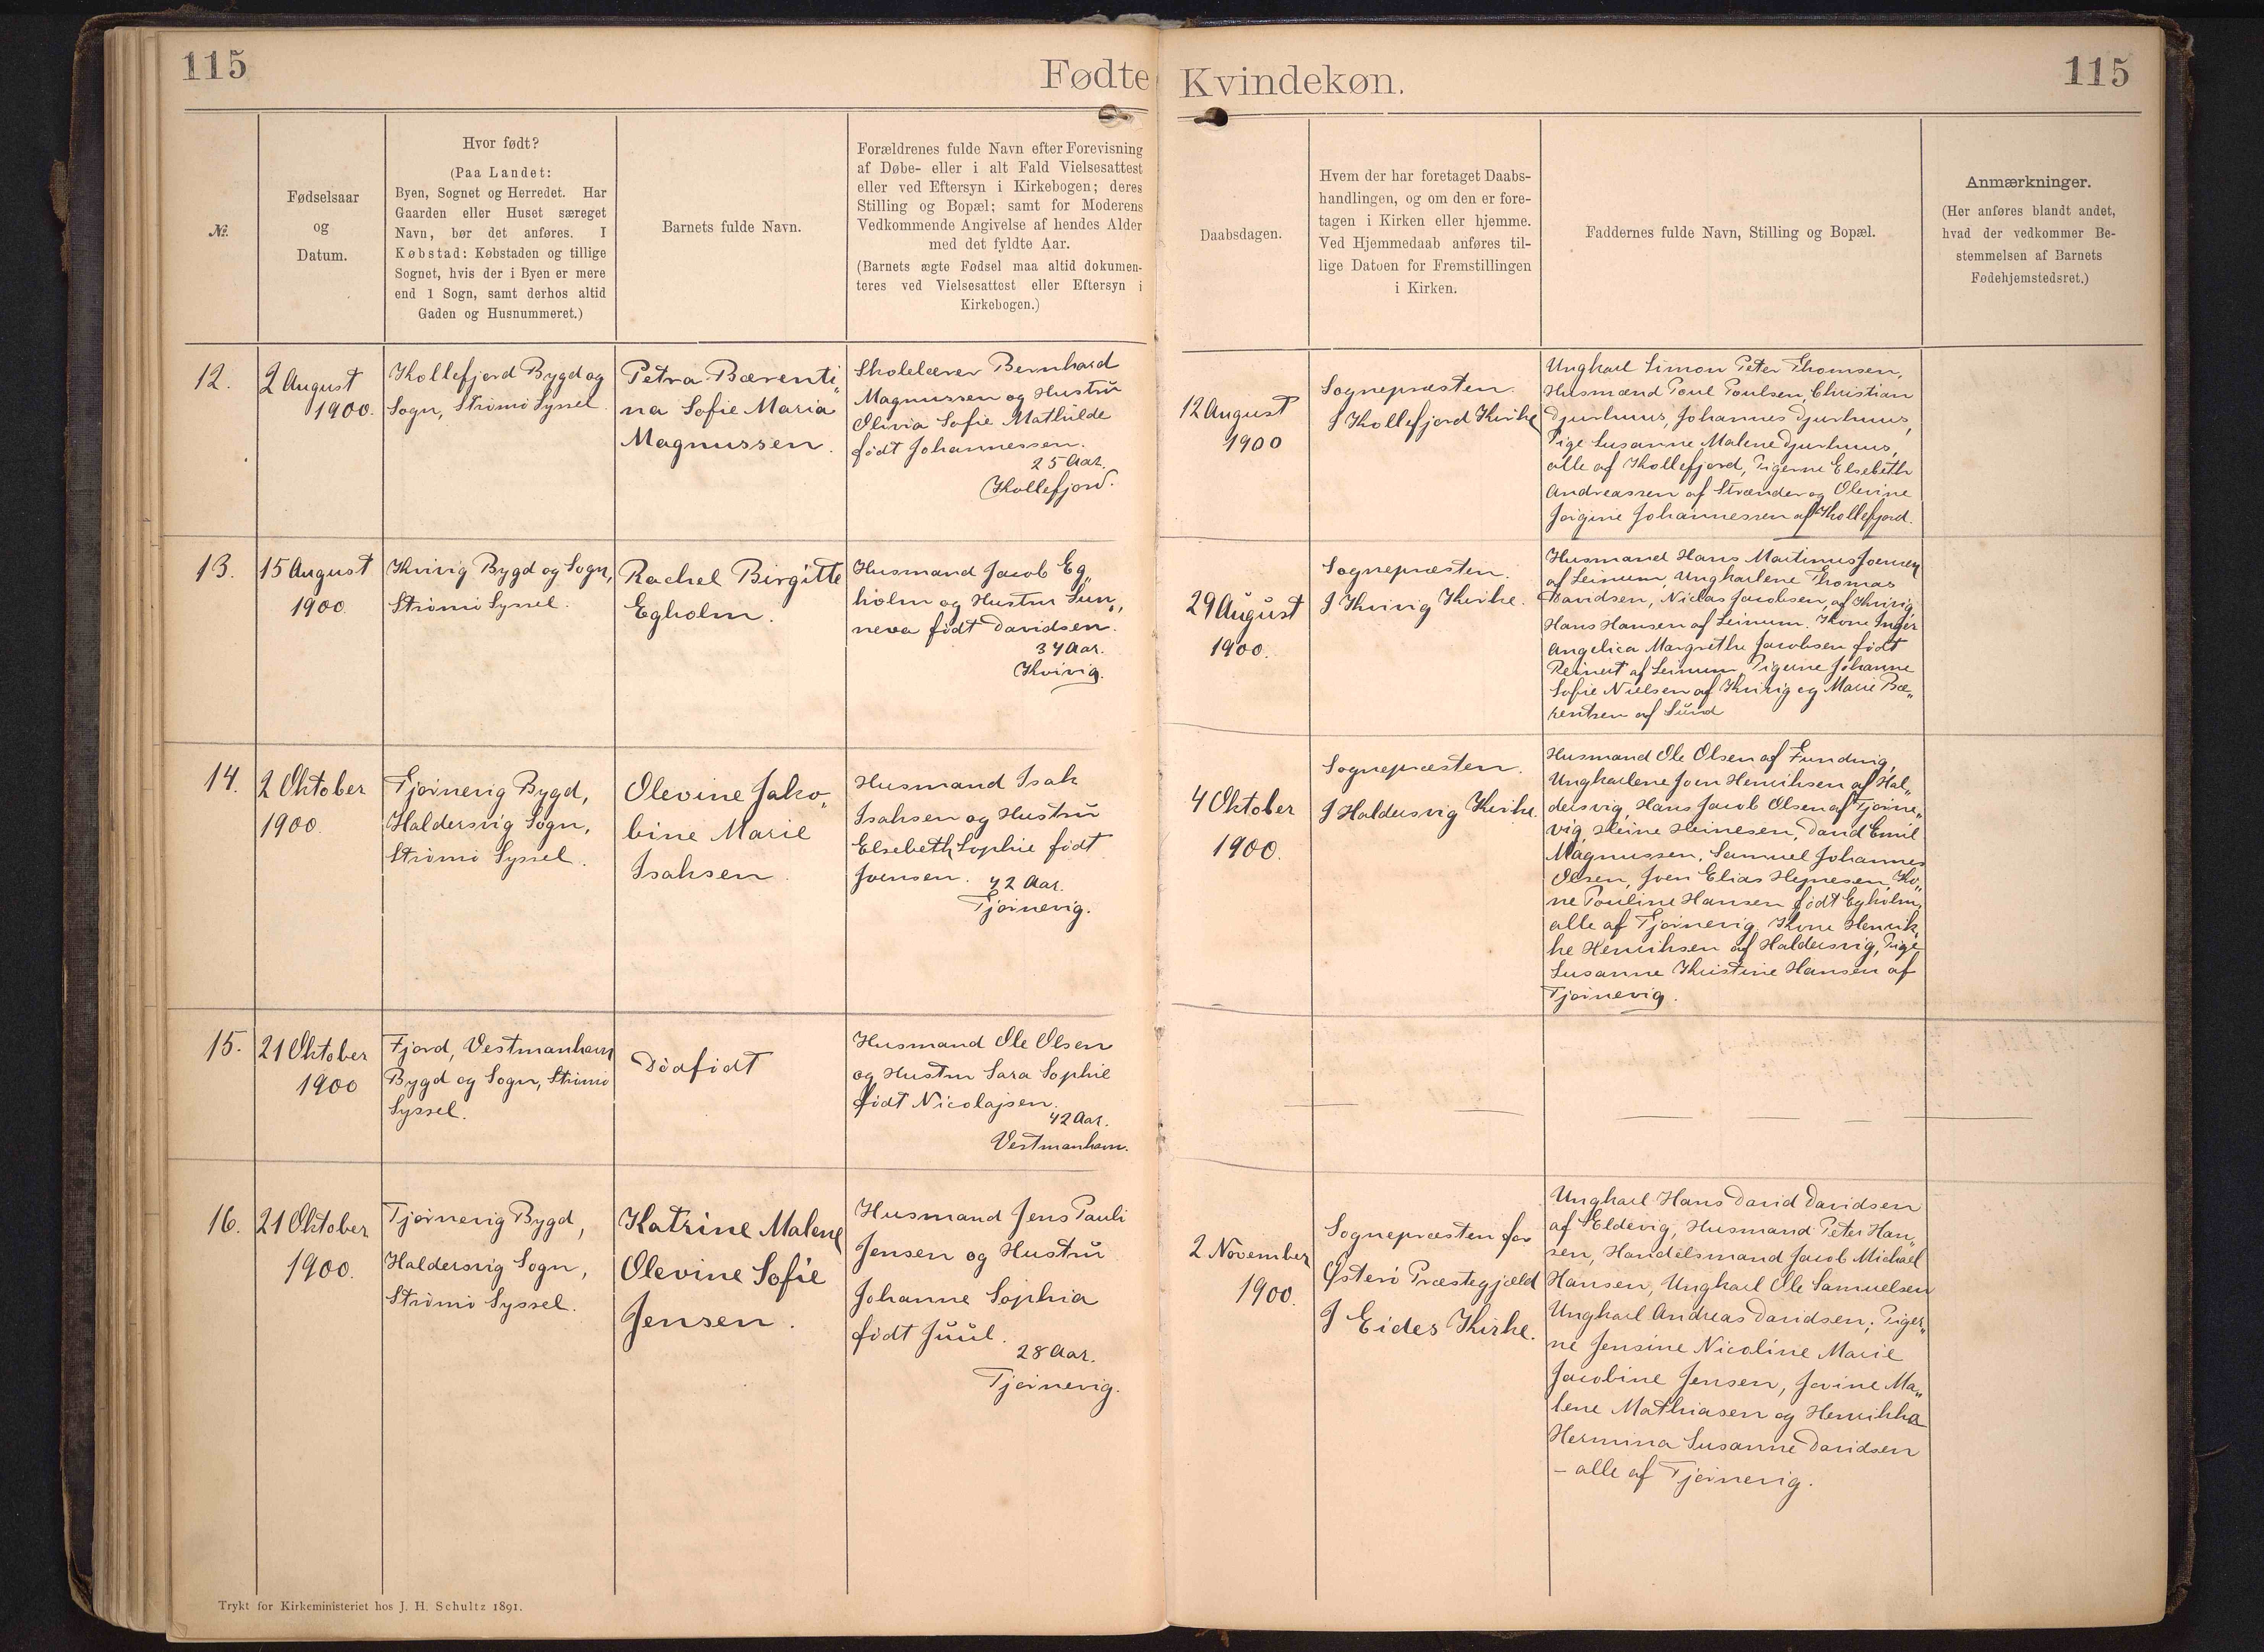 115
Fødte
Kvindekøn.
115
№.
Fødselsaar
og
Datum.
Hvor født?
(Paa Landet:
Byen, Sognet og Herredet. Har
Gaarden eller Huset særeget
Navn, bør det anføres. I
Købstad: Købstaden og tillige
Sognet, hvis der i Byen er mere
end 1 Sogn, samt derhos altid
Gaden og Husnummeret.)
Barnets fulde Navn.
Forældrenes fulde Navn efter Forevisning
af Døbe- eller i alt Fald Vielsesattest
eller ved Eftersyn i Kirkebogen; deres
Stilling og Bopæl; samt for Moderens
Vedkommende Angivelse af hendes Alder
med det fyldte Aar.
(Barnets ægte Fødsel maa altid dokumen-
teres ved Vielsesattest eller Eftersyn i
Kirkebogen.)
Daabsdagen.
Hvem der har foretaget Daabs-
handlingen, og om den er fore-
tagen i Kirken eller hjemme.
Ved Hjemmedaab anføres til-
lige Datoen for Fremstillingen
i Kirken.
Faddernes fulde Navn, Stilling og Bopæl.
Anmærkninger.
(Her anføres blandt andet,
hvad der vedkommer Be-
stemmelsen af Barnets
Fødehjemstedsret.)
12.
2 August
1900.
Kollefjord Bygd og
Sogn, Strømø Syssel.
Petra Bærenti„
na Sofie Maria
Magnussen.
Skolelærer Bernhard
Magnussen og Hustru
Olivia Sofie Mathilde
født Johannessen.
25 Aar.
Kollefjord.
12 August
1900
Sognepræsten.
I Kollefjord Kirke
Ungkarl Simon Peter Thomsen,
Husmænd Poul Poulsen, Christian
Djurhuus, Johannes Djurhuus,
Pige Susanne Malene Djurhuus,
alle af Kollefjord, Pigerne Elsebeth
Andreassen af Strænder og Olevine
Jørgine Johannessen af Kollefjord.
13.
15 August
1900.
Kvivig Bygd og Sogn,
Strømø Syssel.
Rachel Birgitte
Egholm.
Husmand Jacob Eg„
holm og Hustru Sun„
neva født Davidsen.
34 Aar.
Kvivig.
29 August
1900.
Sognepræsten.
I Kvivig Kirke.
Husmand Hans Martinus Joensen
af Leinum, Ungkarlene Thomas
Davidsen, Niclas Jacobsen, af Kvivig,
Hans Hansen af Leinum. Kone Inger
Angelica Margrethe Jacobsen født
Reinert af Leinum, Pigerne Johanne
Sofie Nielsen af Kvivig og Marie Bæ„
rentsen af Sund
14.
2 Oktober
1900.
Tjørnevig Bygd,
Haldersvig Sogn,
Strømø Syssel.
Olevine Jako„
bine Marie
Isaksen.
Husmand Isak
Isaksen og Hustru
Elsebeth Sophie født
Joensen. 42 Aar.
Tjørnevig.
4 Oktober
1900.
Sognepræsten.
I Haldersvig Kirke.
Husmand Ole Olsen af Funding,
Ungkarlene Joen Henriksen af Hal„
dersvig, Hans Jacob Olsen af Tjørne„
vig, Heine Heinesen, David Emil
Magnussen, Samuel Johannes
Olsen, Joen Elias Hejnesen, Ko„
ne Pouline Hansen født Egholm,
alle af Tjørnevig. Kone Henrik„
ke Henriksen af Haldersvig, Pige
Susanne Kristine Hansen af
Tjørnevig.
15.
21 Oktober
1900
Fjord, Vestmanhavn
Bygd og Sogn, Strømø
Syssel.
Dødfødt
Husmand Ole Olsen
og Hustru Sara Sophie
født Nicolajsen.
42 Aar.
Vestmanhavn.
16.
21 Oktober
1900.
Tjørnevig Bygd,
Haldersvig Sogn,
Strømø Syssel.
Katrine Malene
Olevine Sofie
Jensen.
Husmand Jens Pauli
Jensen og Hustru
Johanne Sophia
født Juul.
28 Aar.
Tjørnevig.
2 November
1900.
Sognepræsten for
Østerø Præstegjæld
I Eides Kirke.
Ungkarl Hans David Davidsen
af Eldevig, Husmand Peter Han„
sen, Handelsmand Jacob Michael
Hansen, Ungkarl Ole Samuelsen
Ungkarl Andreas Davidsen, Piger„
ne Jensine Nicoline Marie
Jacobine Jensen, Jovine Ma„
lene Mathiasen og Henrikka
Hermina Susanne Davidsen
- alle af Tjørnevig.
Trykt for Kirkeministeriet hos J. H. Schultz 1891.